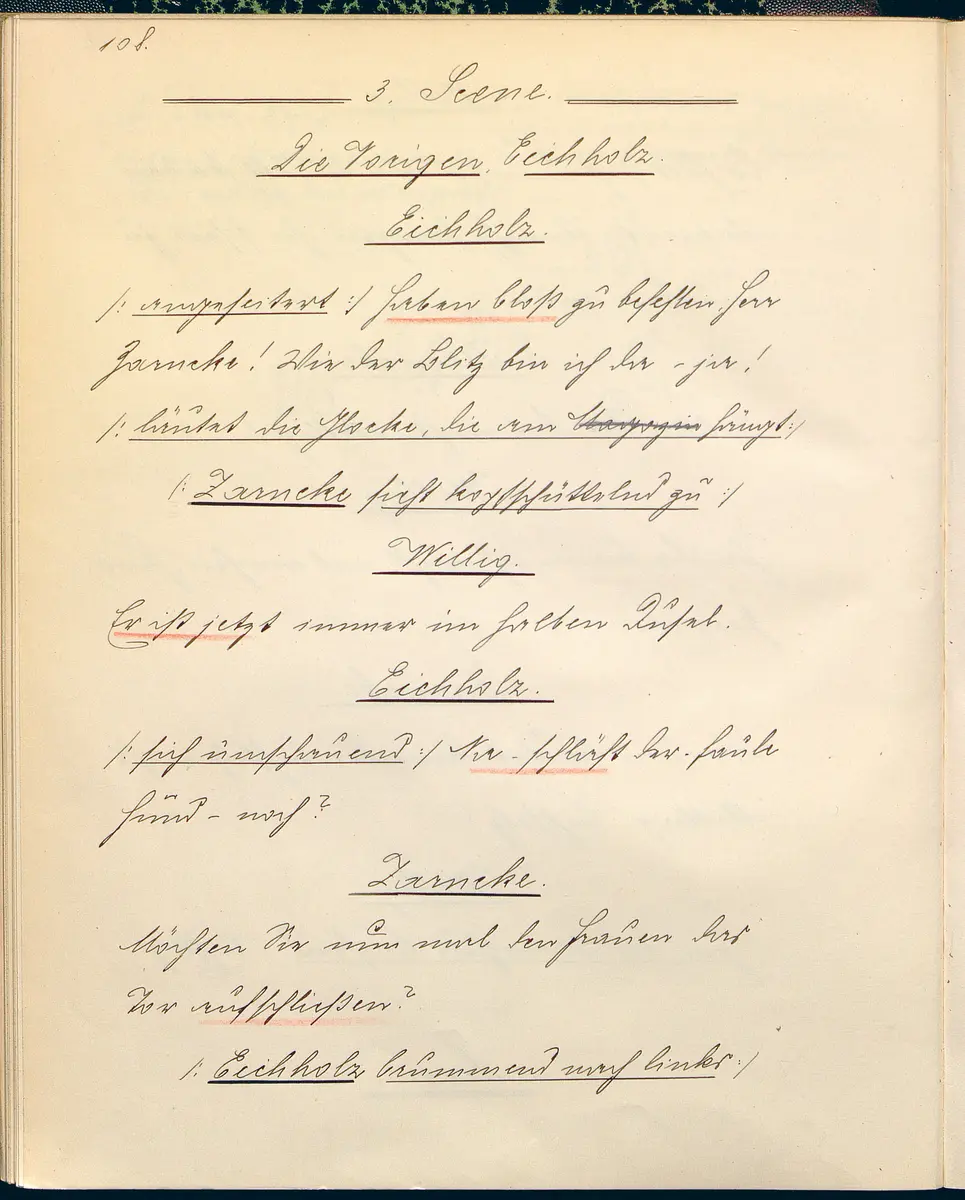 108.
3. Scene.
Die Vorigen, Eichholz.
Eichholz.
/: angeheitert :/ Haben bloß zu befehlen, Herr
Zarncke! Wie der Blitz bin ich da - ja!
/: läutet die Glocke, die am Magazin hängt :/
/: Zarncke sieht kopfschüttelnd zu :/
Willig.
Er ist jetzt immer im halben Dusel.
Eichholz.
/: sich umschauend :/ Na - schläft der - faule
Hund - noch?
Zarncke.
Möchten Sie nun mal den Frauen das
Tor aufschließen?
/: Eichholz brummend nach links :/